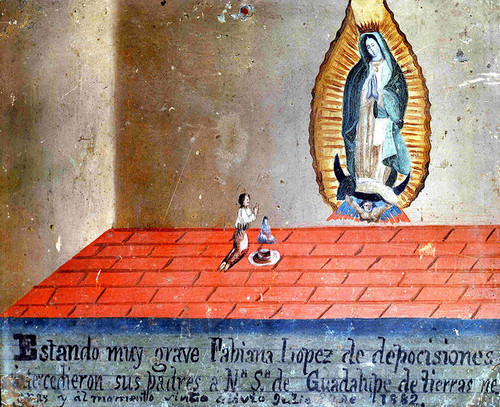 Estando muy grave Fabiana Liopez de depocisiones
intercedieron sus padres a Nª Sª de Guadahipe de tierras ne
ras y al momento vinto alivio Julio de 1882.